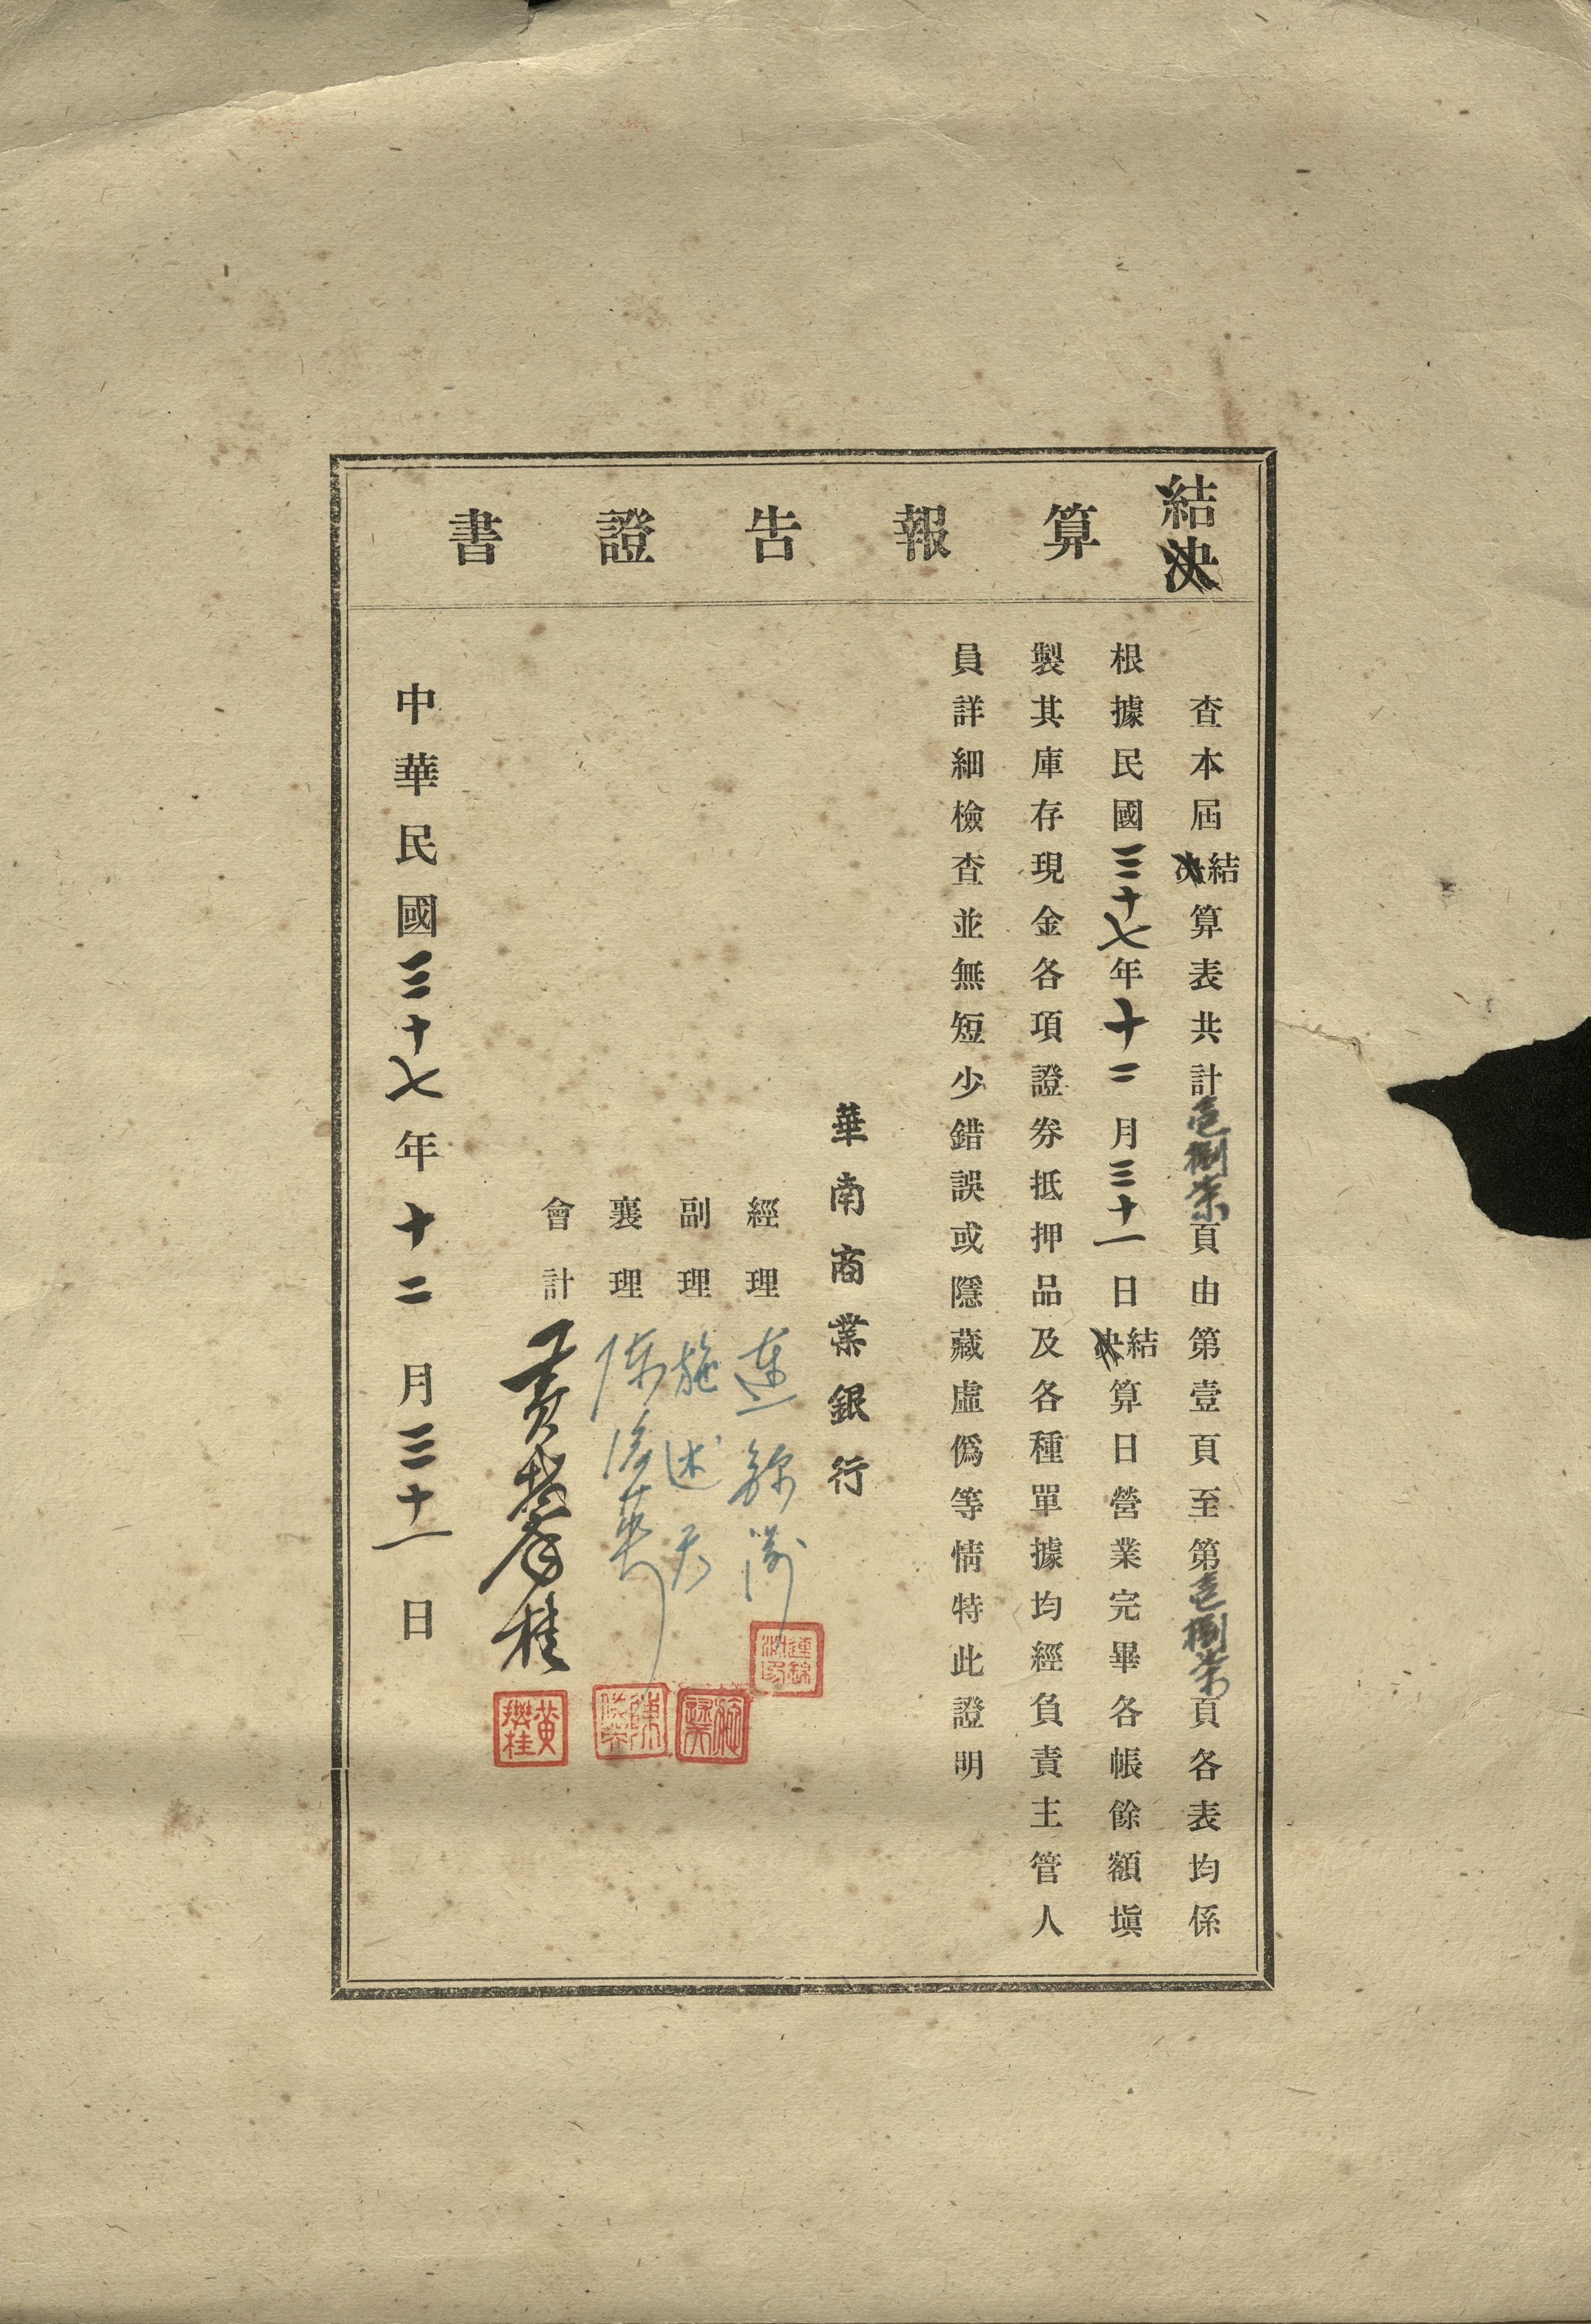 結決算報告證書
查本屆決結算表共計壹捌柒頁由第壹頁至第壹捌柒頁各表均係
根據民國三十七年十二月三十一日決結算日營業完畢各帳餘額塡
製其庫存現金各項證券抵押品及各種單據均經負責主管人
員詳細檢查並無短少錯誤或隱藏虛僞等情特此證明
華南商業銀行
經理 連
副理 施述天
襄理 陳
會計 黃攀桂
黃攀桂
中華民國三十七年十二月三十一日